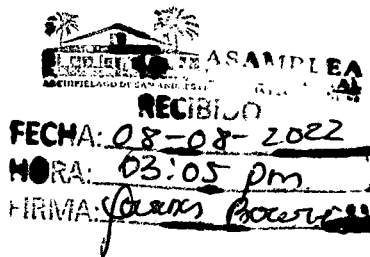 ASAMBLEA
ARCHIPIELAGO DE SAN ANDRES
RECIBIDO
FECHA: 08-08-2022
HORA: 03:05 pm
FIRMA: